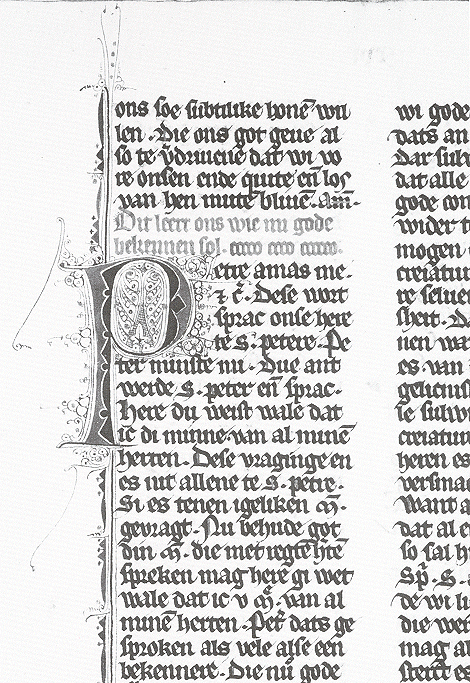 ons soe subtilike honē wil
len · Die ons got geue al
so te v̄driuene dat wi vo
re onsen ende quite en̄ los
van hen mute bliuē · am̄·
Dit leert ons wie mi gode
bekennen sol·
Petre amas me·
⁊ c̄· Dese wort
sprac onse here
te S· petere· Pe
ter minste mi · Due ant
werde S· peter en̄ sprac·
Here du weist wale dat
ic di minne·van al minē
herten· Dese vraginge en
es nit allene te S· petre·
Si es tenen igeliken m̄·
gevragt· Nu behude got
din m̄· die met regtē htē
spreken mag here gi wet
wale dat ic v m̄· van al
minē herten · Pet̄ dats ge
sproken als vele alse een
bekennere· Die nu gode
wi gode
dats an
Dar sulu
dat alle
gode con
wider t
mogen
creiatur
re selue
shert· D
nen wa
es· van
gelicnis
se sulu
creiatur
heren es
versma
Want a
dat al e
so sal h
Sp̄· S·
de wi li
die wer
mag al
sterct es